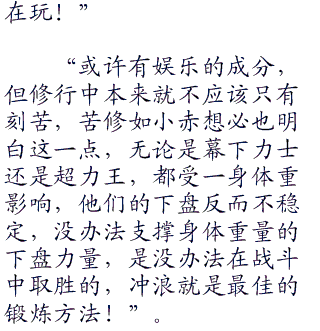 在玩！”
“或许有娱乐的成分，
但修行中本来就不应该只有
刻苦，苦修如小赤想必也明
白这一点，无论是幕下力士
还是超力王，都受一身体重
影响，他们的下盘反而不稳
定，没办法支撑身体重量的
下盘力量，是没办法在战斗
中取胜的，冲浪就是最佳的
锻炼方法！”。